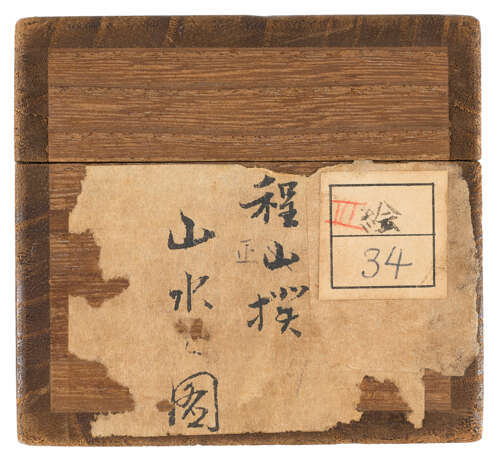 III 絵
34
程山撲
正
山水之圖